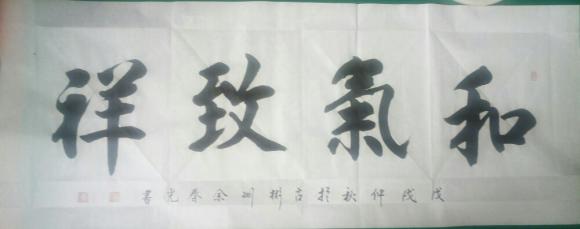 和氣致祥
戊戌仲秋於古彬州余春光書